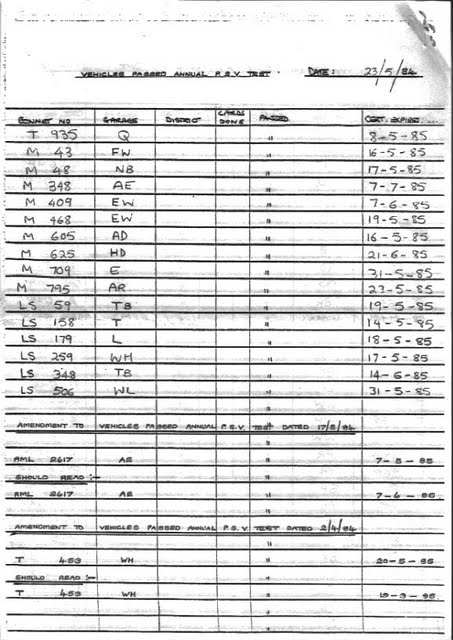 VEHICLES PASSED ANNUAL P.S.V TEST. DATE: 23/5/84
BONNET NO GARAGE DISTRICT CARDS DONE PASSED CERT. EXPIRES
T 935 Q " 8-5-85
M 43 FW " 16-5-85
M 48 NB " 17-5-85
M 348 AE " 7-7-85
M 409 EW " 7-6-85
M 468 EW " 19-5-85
M 605 AD " 16-5-85
M 625 HD " 21-6-85
M 709 E " 31-5-85
M 795 AR " 23-5-85
LS 59 TB " 19-5-85
LS 158 T " 14-5-85
LS 179 L " 18-5-85
LS 259 WH " 17-5-85
LS 348 TB " 14-6-85
LS 506 WL " 31-5-85
AMENDMENT TO VEHICLES PASSED ANNUAL P.S.V TEST DATED 17/5/84
RML 2617 AE " 7-5-85
SHOULD READ :- "
RML 2617 AE " 7-6-85
AMENDMENT TO VEHICLES PASSED ANNUAL P.S.V TEST DATED 2/4/84
T 453 WH " 20-5-85
SHOULD READ :- "
T 453 WH " 19-3-85